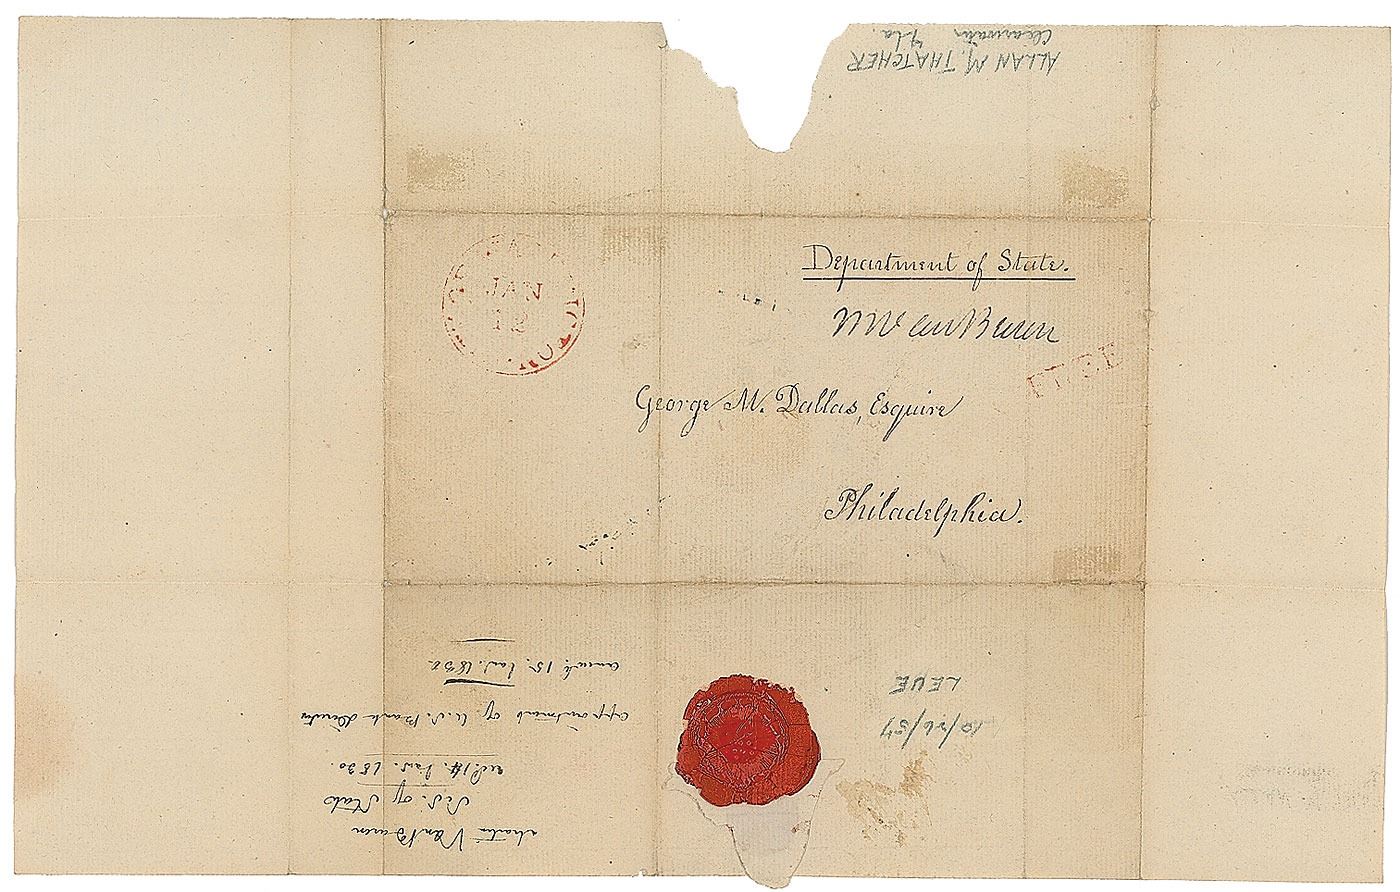 ALLAN M. THATCHER
Clearwater Fla.
JAN
12
Department of State.
MVanBuren
FREE
George M. Dallas, Esquire
Philadelphia.
Martin Van Buren
Sec. of State
rec. 14. Jan. 1830.
appointment of U.S. Bank Director
answd. 15. Jan. 1830
10/26/54
LEVE